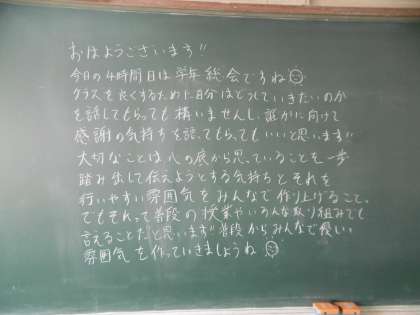 おはようございます!!
今日の4時間目は学年総会ですね
クラスを良くするために自分はどうしていきたいのか
を話してもらっても構いませんし、誰かに向けて
感謝の気持ちを語ってもらってもいいと思います!!
大切なことは心の底から思っていることを一歩
踏み出して伝えようとする気持ちとそれを
行いやすい雰囲気をみんなで作り上げること。
でもそれって普段の授業やいろんな取り組みでも
言えることだと思います!!普段からみんなで優しい
雰囲気を作っていきましょうね